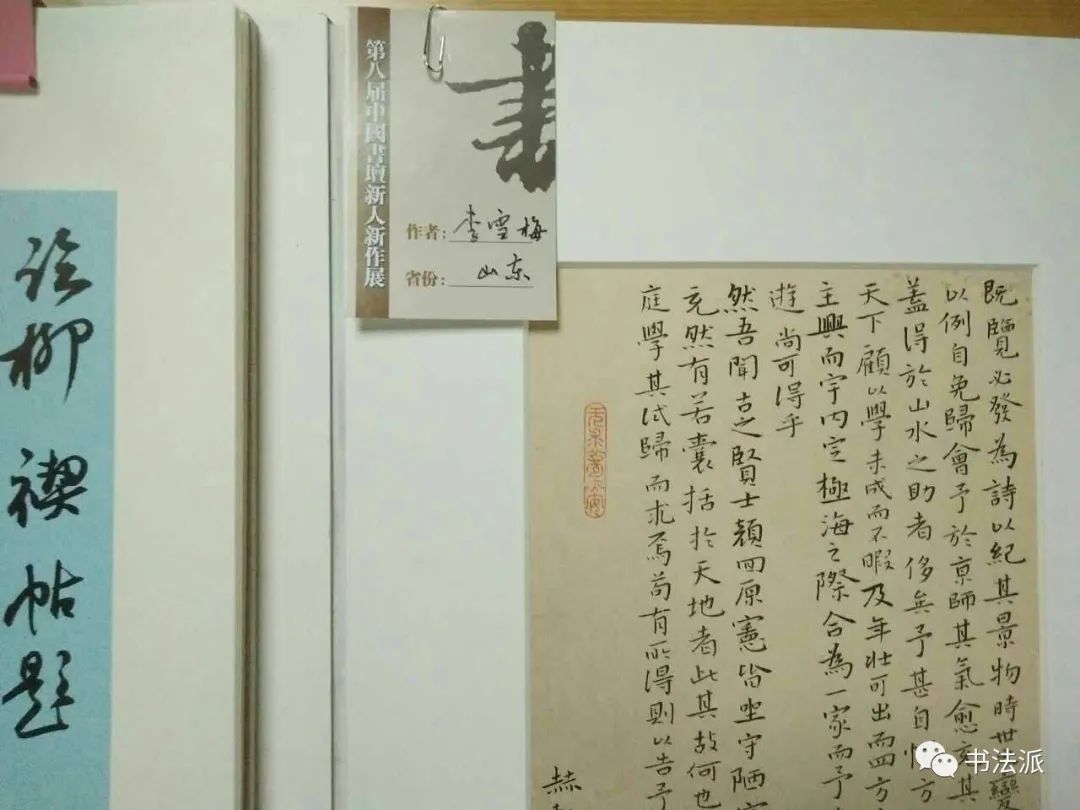 论柳禊帖题
第八届中國書壇新人新作展
書
作者：李雪梅
省份：山东
既覽必發為詩以紀其景物時世之變
以例自免歸會予於京師其氣愈充其
蓋得於山水之助者侈矣予甚自愧方
天下顧以學未成而不暇及年壯可出而四方
主興而宇内定極海之際合為一家而予
遊尚可得乎
然吾聞古之賢士顏回原憲皆坐守陋室
充然有若囊括於天地者此其故何也
庭學其試歸而求焉苟有所得則以告予
赫
书法派